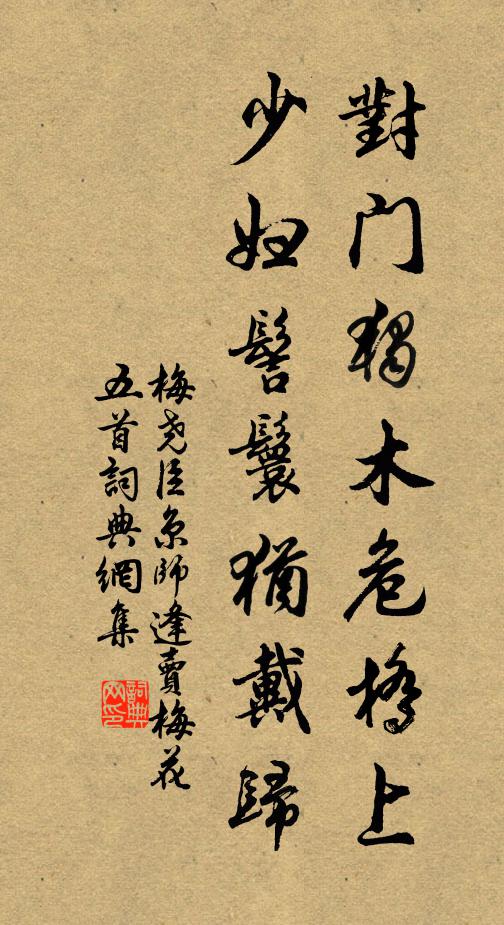 對門獨木危橋上
少婦髻鬟猶戴歸
梅堯臣京師逢賣梅花
五首詞典網集
詞典网印